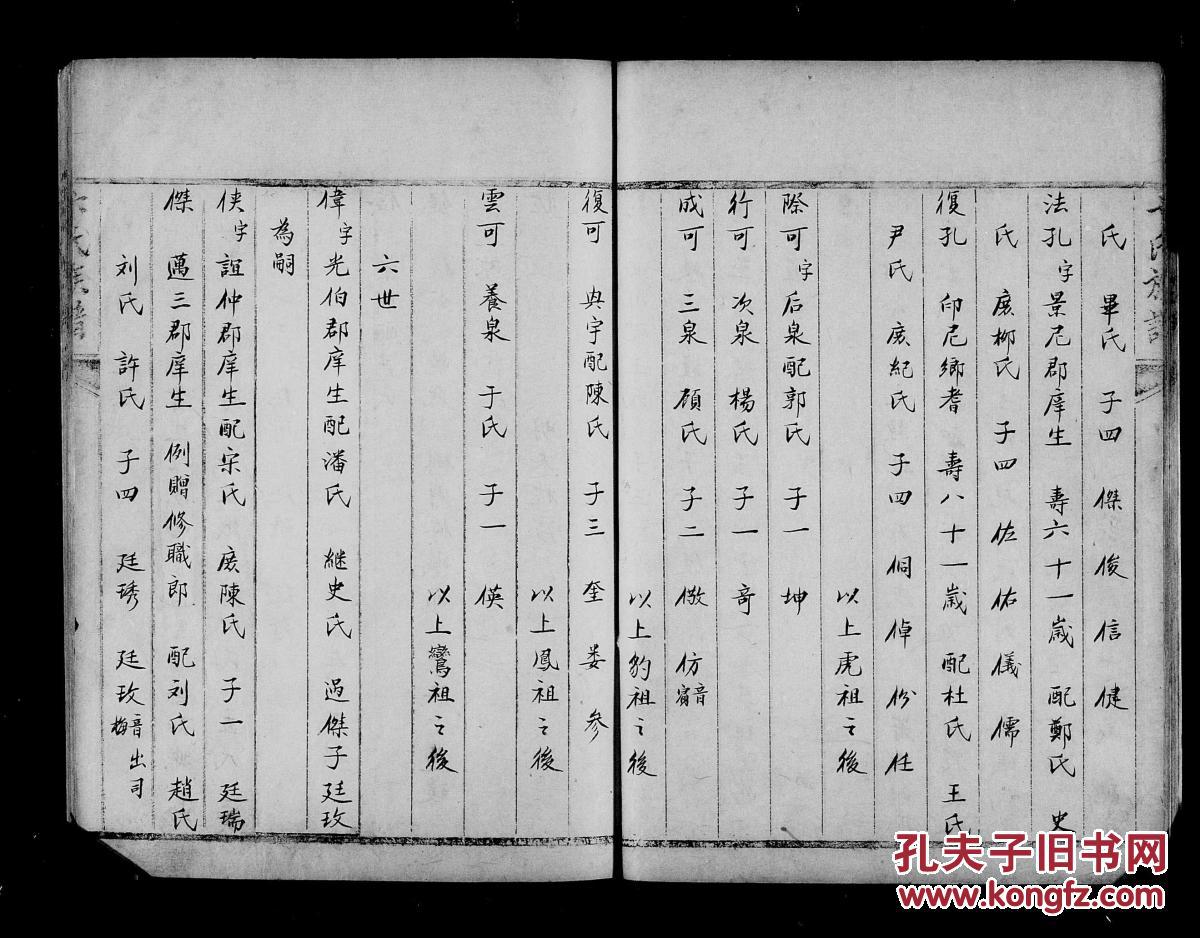 氏 畢氏 子四 傑 俊 信 健
法孔 字景尼郡庠生 壽六十一歲 配鄭氏 史
氏 庶柳氏 子四 佐 佑 儀 儒
復孔 印尼鄉耆 壽八十一歲 配杜氏 王氏
尹氏 庶紀氏 子四 侗 倬 份 任
以上虎祖之後
際可 字后泉配郭氏 子一 坤
行可 次泉 楊氏 子一 奇
成可 三泉 顔氏 子二 儆 仿 音賓
以上豹祖之後
復可 興宇配陳氏 子三 奎 婁 參
以上鳳祖之後
雲可 養泉 于氏 子一 僕
以上鸞祖之後
六世
偉 字光伯郡庠生配潘氏 継史氏 過傑子廷玫
為嗣
俠 字誼仲郡庠生配宋氏 庶陳氏 子一 廷瑞
傑 邁三郡庠生 例贈修職郎 配刘氏 趙氏
刘氏 許氏 子四 廷琇 廷玫 音梅 出司
氏族譜
孔夫子旧书网
www.kongfz.com